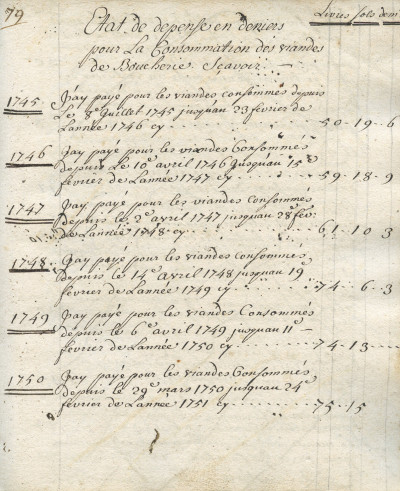 79
Etat de depense en deniers
Livres sols den
pour La Consommation des viandes
de Boucherie Scavoir
1745 J'ay payé pour les viandes consommés depuis
Le 8e Juillet 1745 jusquau 23 février de
Lannée 1746 cy 50-19-6
1746 Jay payé pour les viandes Consommés
depuis Le 10e avril 1746 Jusquau 15e
février de Lannée 1747 cy 59-18-9
1747 Jay payé pour les viandes Consommés
depuis le 2e avril 1747 jusquau 28e fév.
de Lannée 1748 cy 61-10 3
1748 Jay payé pour les viandes Consommés
depuis le 14e avril 1748 jusquau 19
février de Lannée 1749 cy 74-6-3
1749 Jay payé pour les viandes Consommés
depuis le 6e avril 1749 jusquau 11e
février de Lannée 1750 cy 74-13
1750 Jay payé pour les viandes Consommés
depuis le 29e mars 1750 jusquau 24e
février de Lannée 1751 cy 75-15